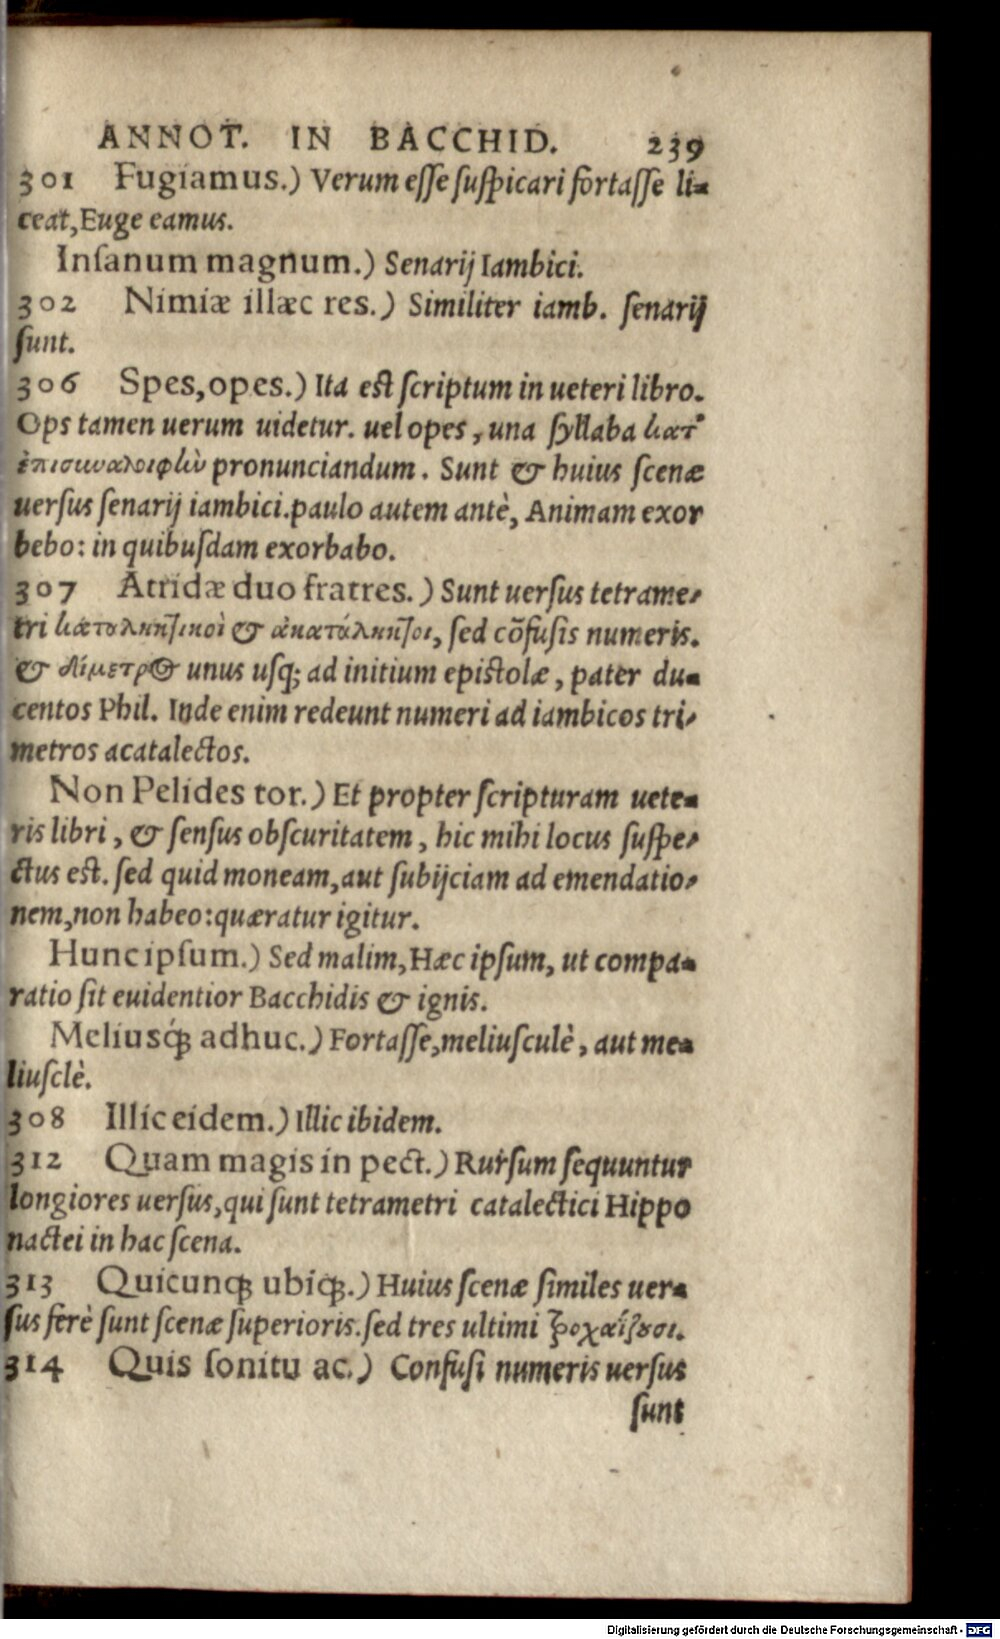 ANNOT. IN BACCHID. 239
301 Fugiamus.) Verum eſſe ſuſpicari fortaſſe li-
ceat, Euge eamus.
Inſanum magnum.) Senarij Iambici.
302 Nimiæ illæc res.) Similiter iamb. ſenarij
ſunt.
306 Spes, opes.) Ita eſt ſcriptum in ueteri libro.
Ops tamen uerum uidetur. uel opes, una ſyllaba κατ'
ἐπισυναλοιφὼ pronunciandum. Sunt & huius ſcenæ
uerſus ſenarij iambici. paulo autem antè, Animam exor
bebo: in quibuſdam exorbabo.
307 Atridæ duo fratres.) Sunt uerſus tetrame-
tri καταληκτικοὶ & ἀκατάληκτοι, ſed cõfuſis numeris.
& δίμετρος unus uſq; ad initium epiſtolæ, pater du-
centos Phil. Inde enim redeunt numeri ad iambicos tri-
metros acatalectos.
Non Pelides tor.) Et propter ſcripturam uete-
ris libri, & ſenſus obſcuritatem, hic mihi locus ſuſpe-
ctus eſt. ſed quid moneam, aut ſubijciam ad emendatio-
nem, non habeo: quæratur igitur.
Hunc ipſum.) Sed malim, Hæc ipſum, ut compa-
ratio ſit euidentior Bacchidis & ignis.
Meliusq́; adhuc.) Fortaſſe, meliuſculè, aut me-
liuſclè.
308 Illic eidem.) Illic ibidem.
312 Quam magis in pect.) Rurſum ſequuntur
longiores uerſus, qui ſunt tetrametri catalectici Hippo
nactei in hac ſcena.
313 Quicunq; ubiq;.) Huius ſcenæ ſimiles uer-
ſus ferè ſunt ſcenæ ſuperioris. ſed tres ultimi τροχαΐζουσι.
314 Quis ſonitu ac.) Confuſi numeris uerſus
ſunt
Digitalisierung gefördert durch die Deutsche Forschungsgemeinschaft - DFG